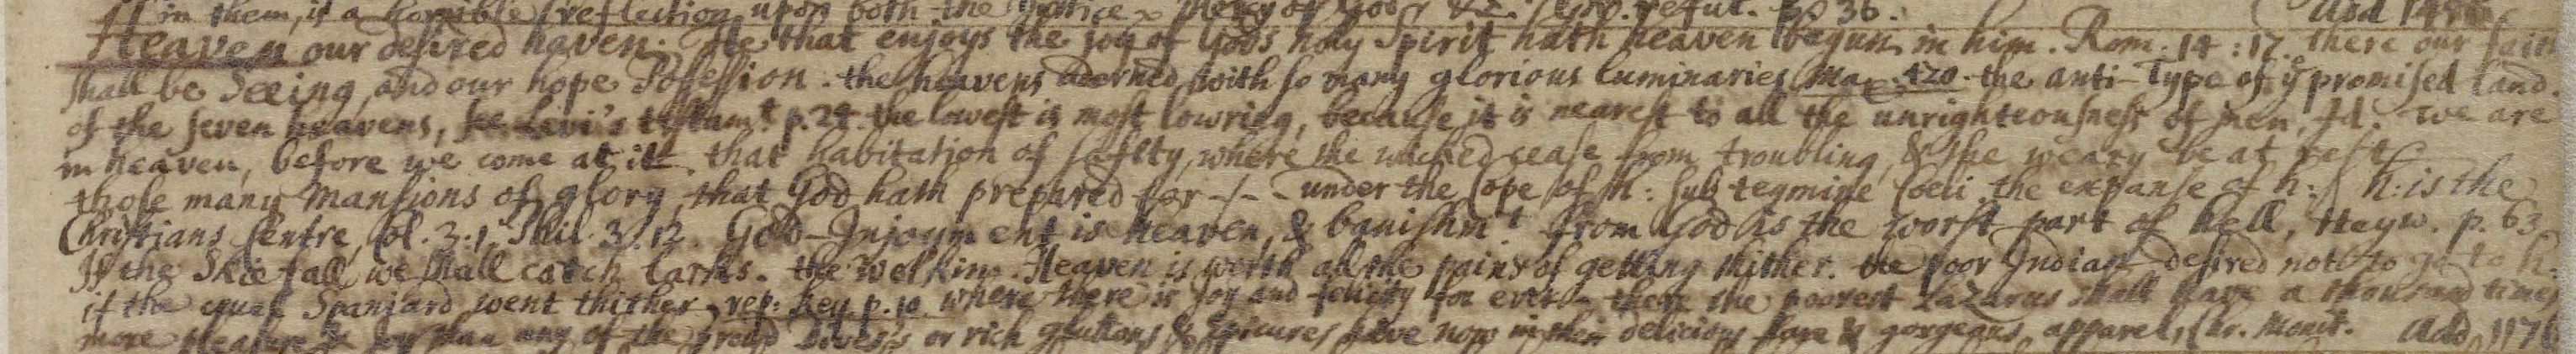 in them, is a horrible reflection upon both the Justice & Mercy of God. refut. p. 36. Add 1486
Heaven our desired haven. He that enjoys the joy of Gods holy Spirit hath heaven begun in him. Rom. 14:17. there our faith
shall be Seeing, and our hope Possession. the heavens adorned with so many glorious luminaries, Ma 420. the anti-Type of yͤ promised land.
of the seven heavens, Levi's testamᵗ. p. 24. the lowest is most lowring, because it is nearest to all the unrighteousness of men, Id. we are
in heaven, before we come at it. that habitation of safety, where the wicked cease from troubling, & the weary be at rest.
those many Mansions of glory, that God hath prepared for -/- under the Cope of h: sub tegmine Coeli. the expanse of h: h: is the
Christians Centre, Col. 3.1. Phil. 3.12. God-Injoyment is heaven, & banishmᵗ from God is the worst part of hell, Hayw. p. 63.
If the Skie fall we shall catch larks. the Welkin. Heaven is worth all the pains of getting thither. the poor Indian desired not to go to h:
if the cruel Spaniard went thither, rep: key. p. 10. where there is Joy and felicity for ever. there the poorest Lazarus shall have a thousand times
more pleasure & joy than any of the proud Dives's or rich gluttons & Epicures have now in their delicious fare & gorgeous apparel, Chr. Monit. Add 1176